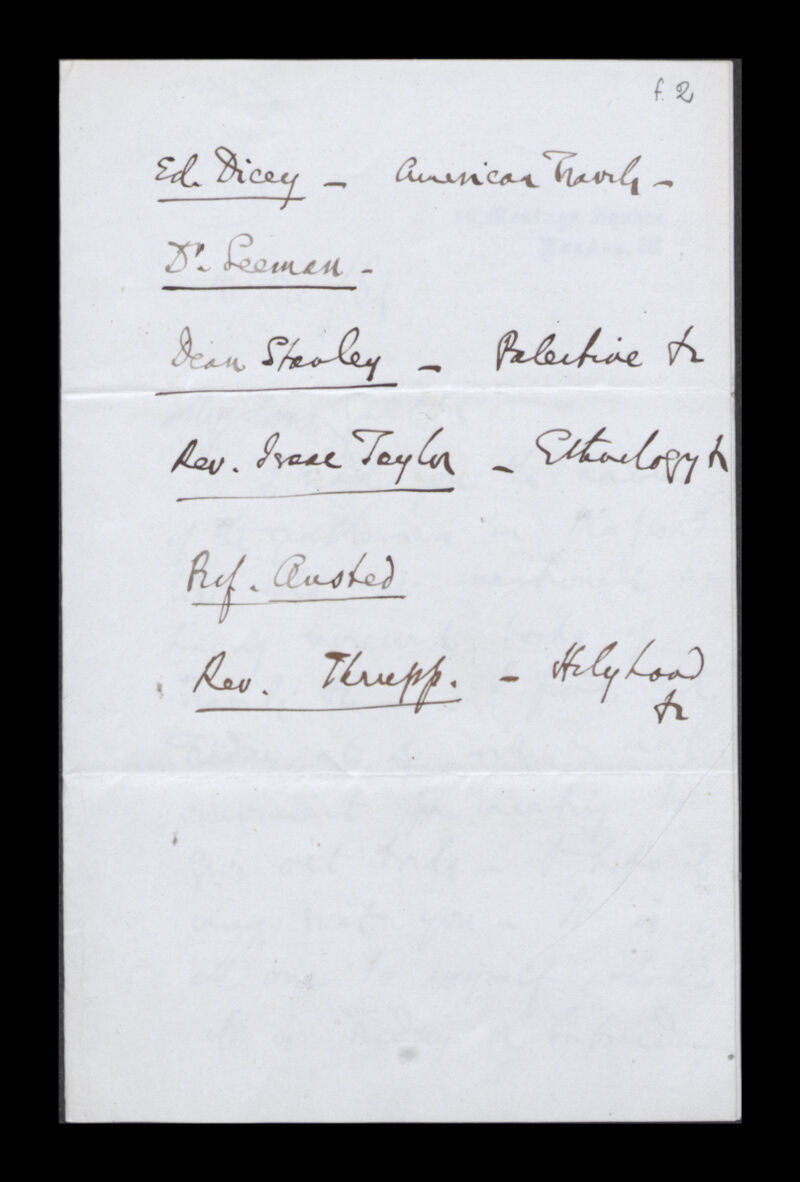 f. 2
Ed. Dicey - American Travels -
Dr. Seeman -
Dean Stanley - Palestine &c
Rev. Isaac Taylor - Ethnology &c
Prof. Ansted
Rev. Thrupp. - Holyhood
&c